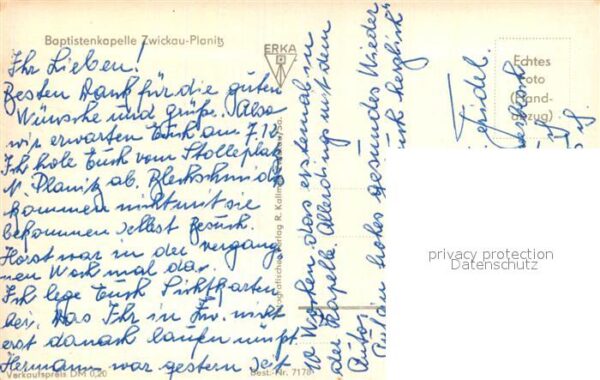 Baptistenkapelle Zwickau-Planitz
ERKA
Echtes
Foto
(Hand-
abzug)
Ihr Lieben!
Besten Dank für die guten
Wünsche und grüße. Also
wir erwarten Euch am 7.12.
Ich hole Euch vom Stolleplatz
N. Planitz ab. Blechschmids
kommen nicht mit sie
bekommen selbst Besuch.
Horst war in der vergang
nen Woch mal da.
Ich lege Euch Sichtkarten
bei. Das Ihr in Zw. nicht
erst danach laufen müßt.
Hermann war gestern seit
10 Wochen das erstemal in
der Kapelle. Allerdings mit dem
Autos.
frohes gesundes Wieder
herzlich
Friedel.
Verlag R. Kallmer
Verkaufspreis DM 0,20
Best.-Nr. 7178
privacy protection
Datenschutz